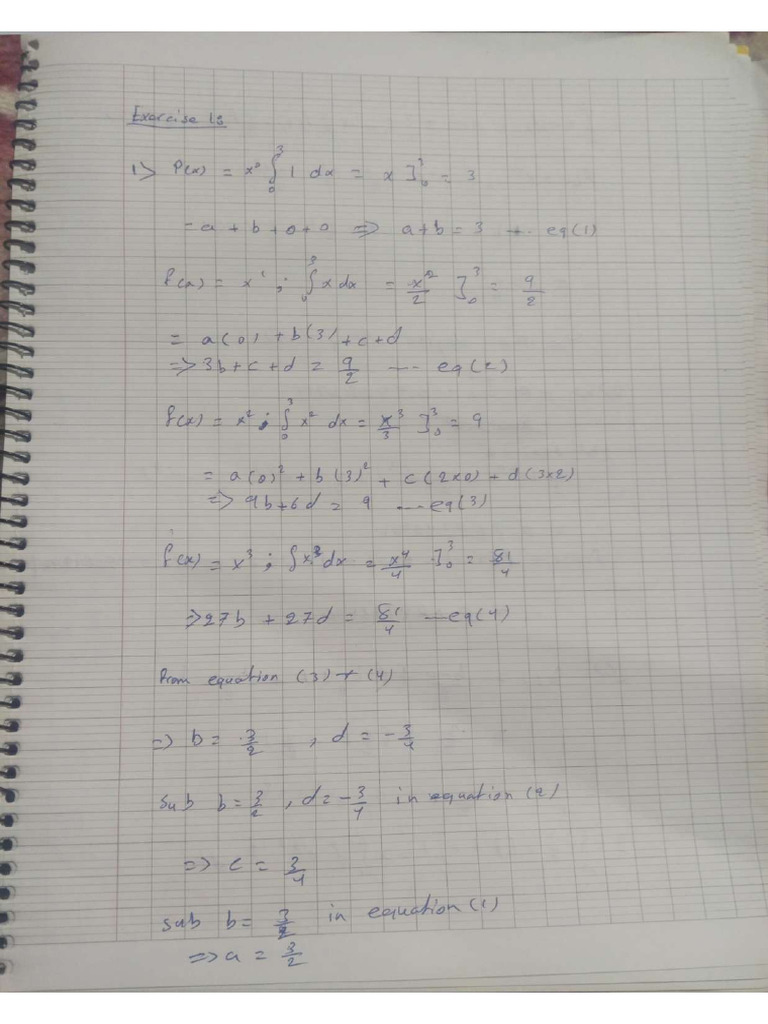 Exercise 13
1> P(x) = x⁰ ∫₀³ 1 dx = x ]₀³ = 3
= a + b + 0 + 0 => a + b = 3 --- eq(1)
f(x) = x¹ ; ∫₀³ x dx = x²/2 ]₀³ = 9/2
= a(0) + b(3) + c + d
=> 3b + c + d = 9/2 --- eq(2)
f(x) = x² ; ∫₀³ x² dx = x³/3 ]₀³ = 9
= a(0)² + b(3)² + c(2x0) + d(3x2)
=> 9b + 6d = 9 --- eq(3)
f(x) = x³ ; ∫ x³ dx = x⁴/4 ]₀³ = 81/4
=> 27b + 27d = 81/4 --- eq(4)
From equation (3) + (4)
=> b = 3/2 , d = -3/4
sub b = 3/2 , d = -3/4 in equation (2)
=> c = 3/4
sub b = 3/2 in equation (1)
=> a = 3/2